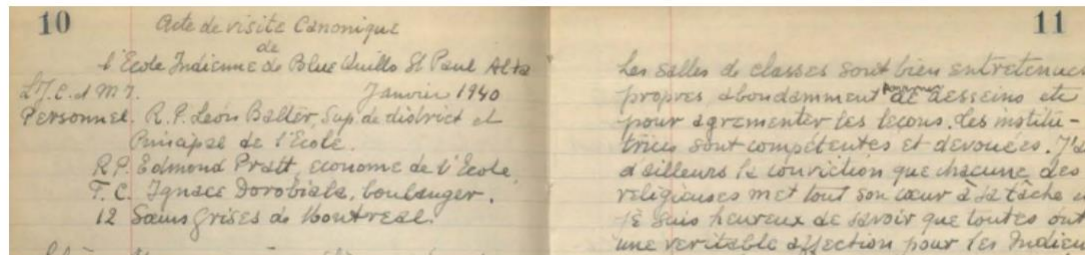 10
Acte de visite Canonique
de
l'Ecole Indienne de Blue Quills St Paul Alta
L.J.C. et M.I. Janvier 1940
Personnel. R.P. Léon Balter, Sup. de district et
Principal de l'Ecole.
R.P. Edmond Pratt, econome de l'Ecole,
F.C. Ignace Dorobiala, boulanger.
12 Sœurs Grises de Montreal.
11
Les salles de classes sont bien entretenues
propres, abondamment de desseins etc
pour agrementer les leçons. Les institu-
trices sont compétentes et devouées. J'
d'ailleurs la conviction que chacune des
religieuses met tout son cœur à sa tâche
je suis heureux de savoir que toutes ont
une veritable affection pour les Indien